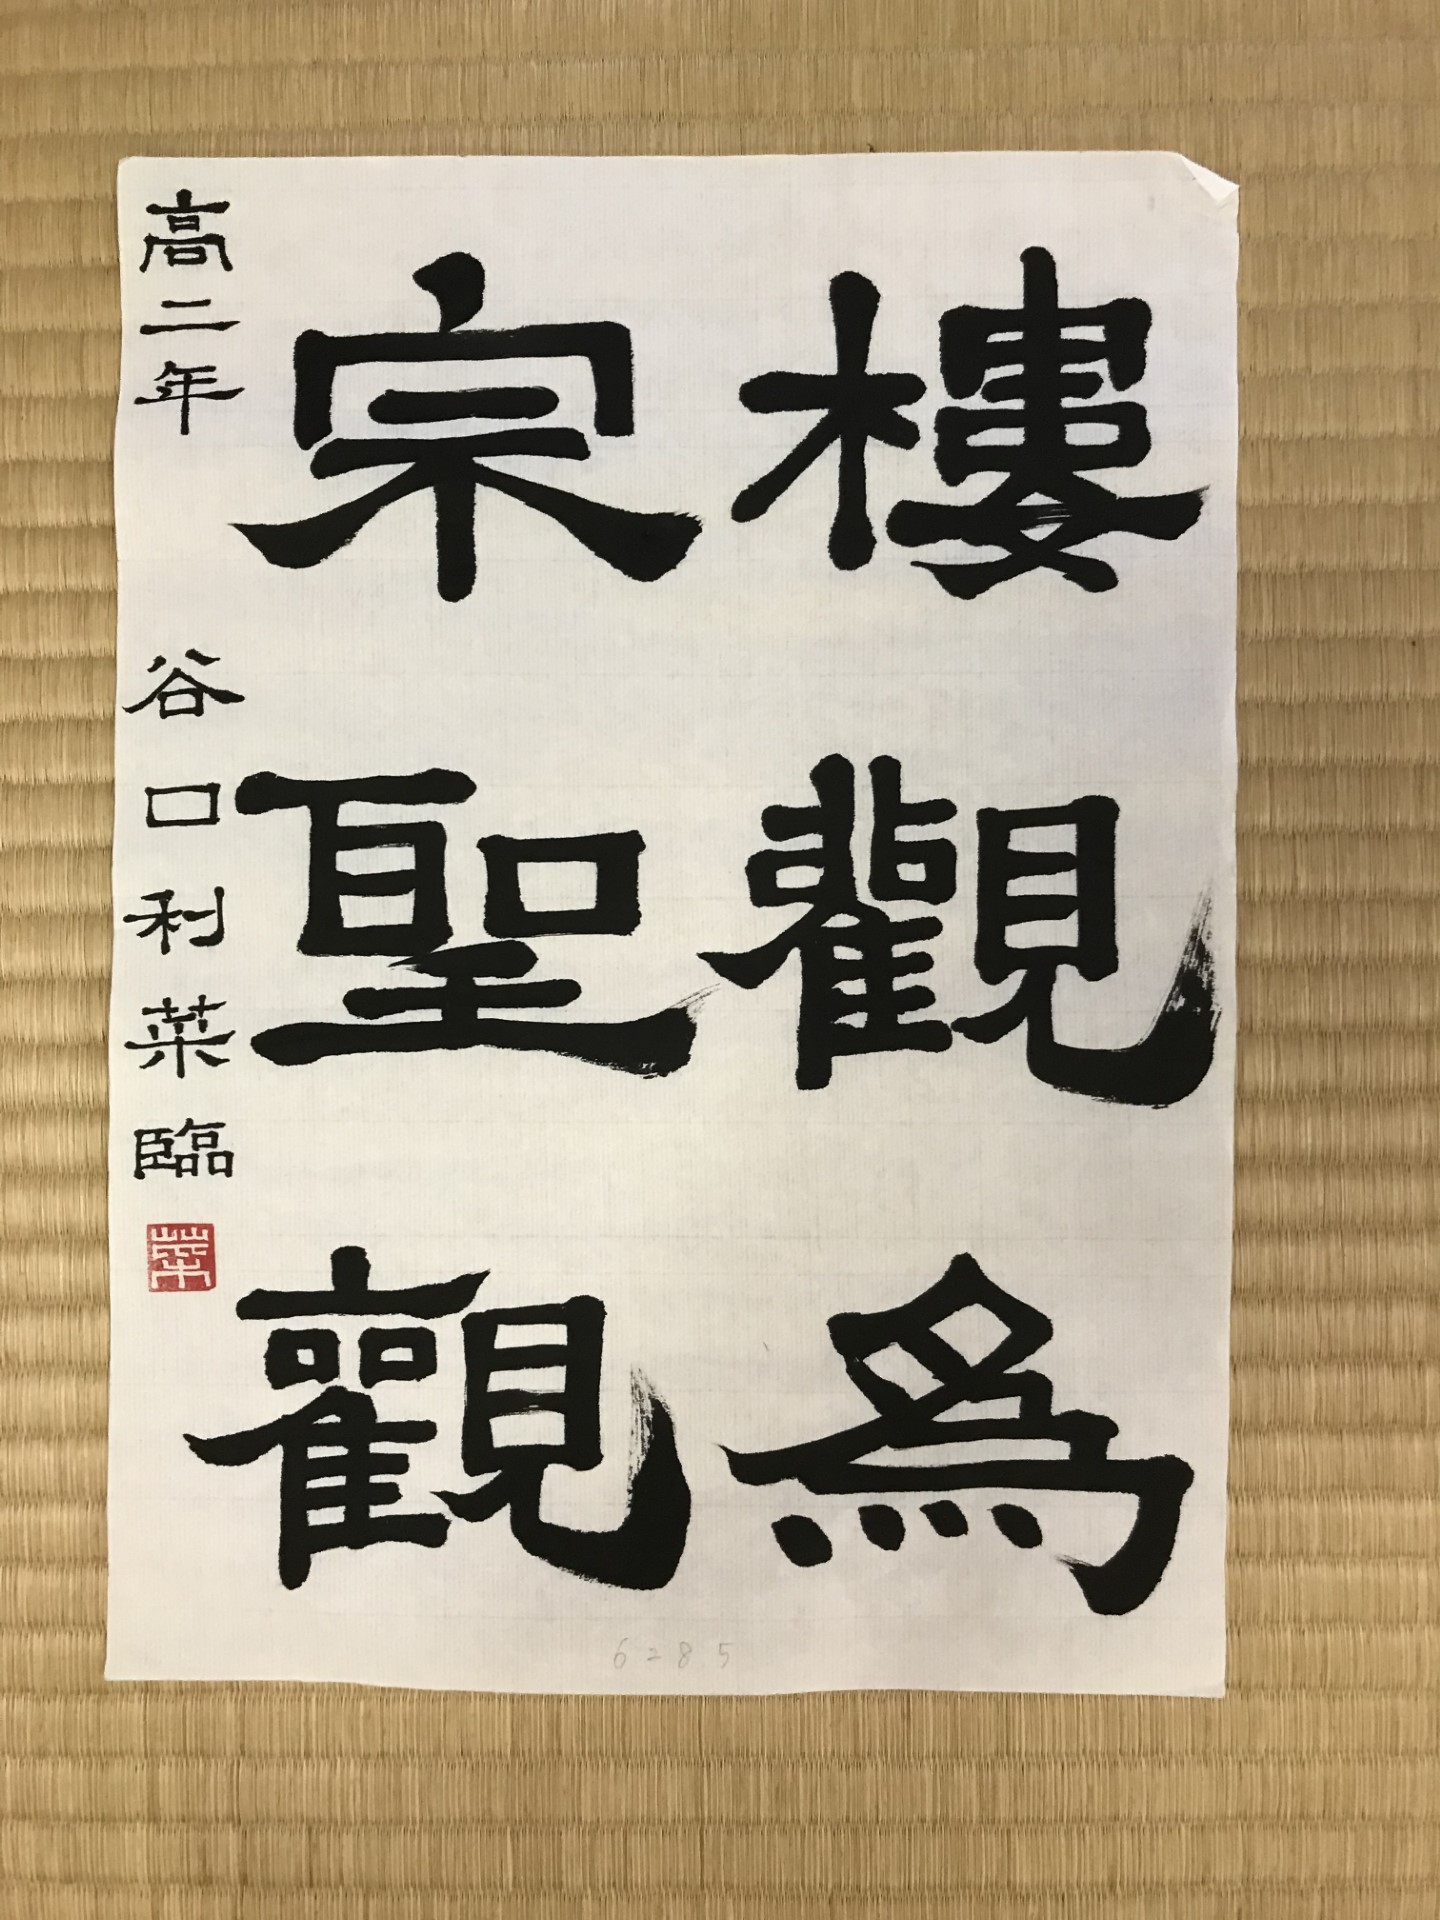 樓觀為
宗聖觀
高二年 谷口利菜臨
菜
6285